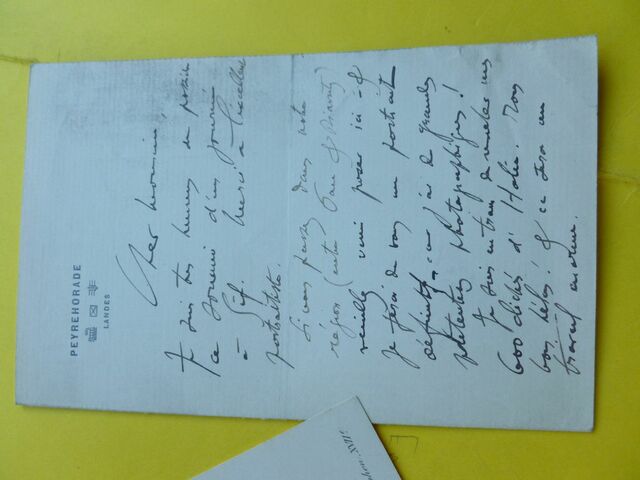 PEYREHORADE
LANDES
Cher monsieur,
Je suis très heureux de posséder
ce souvenir d'une journée
à Gif. Merci à l'excellent
portraitiste.
Si vous passez dans notre
région (entre Pau & Biarritz)
veuillez venir poser ici - &
je ferai de vous un portrait
définitif - car j'ai de grandes
prétentions photographiques !
Je suis en train de révéler mes
600 clichés d'Italie. Tous
bons, hélas ! & ce sera un
travail
XVII